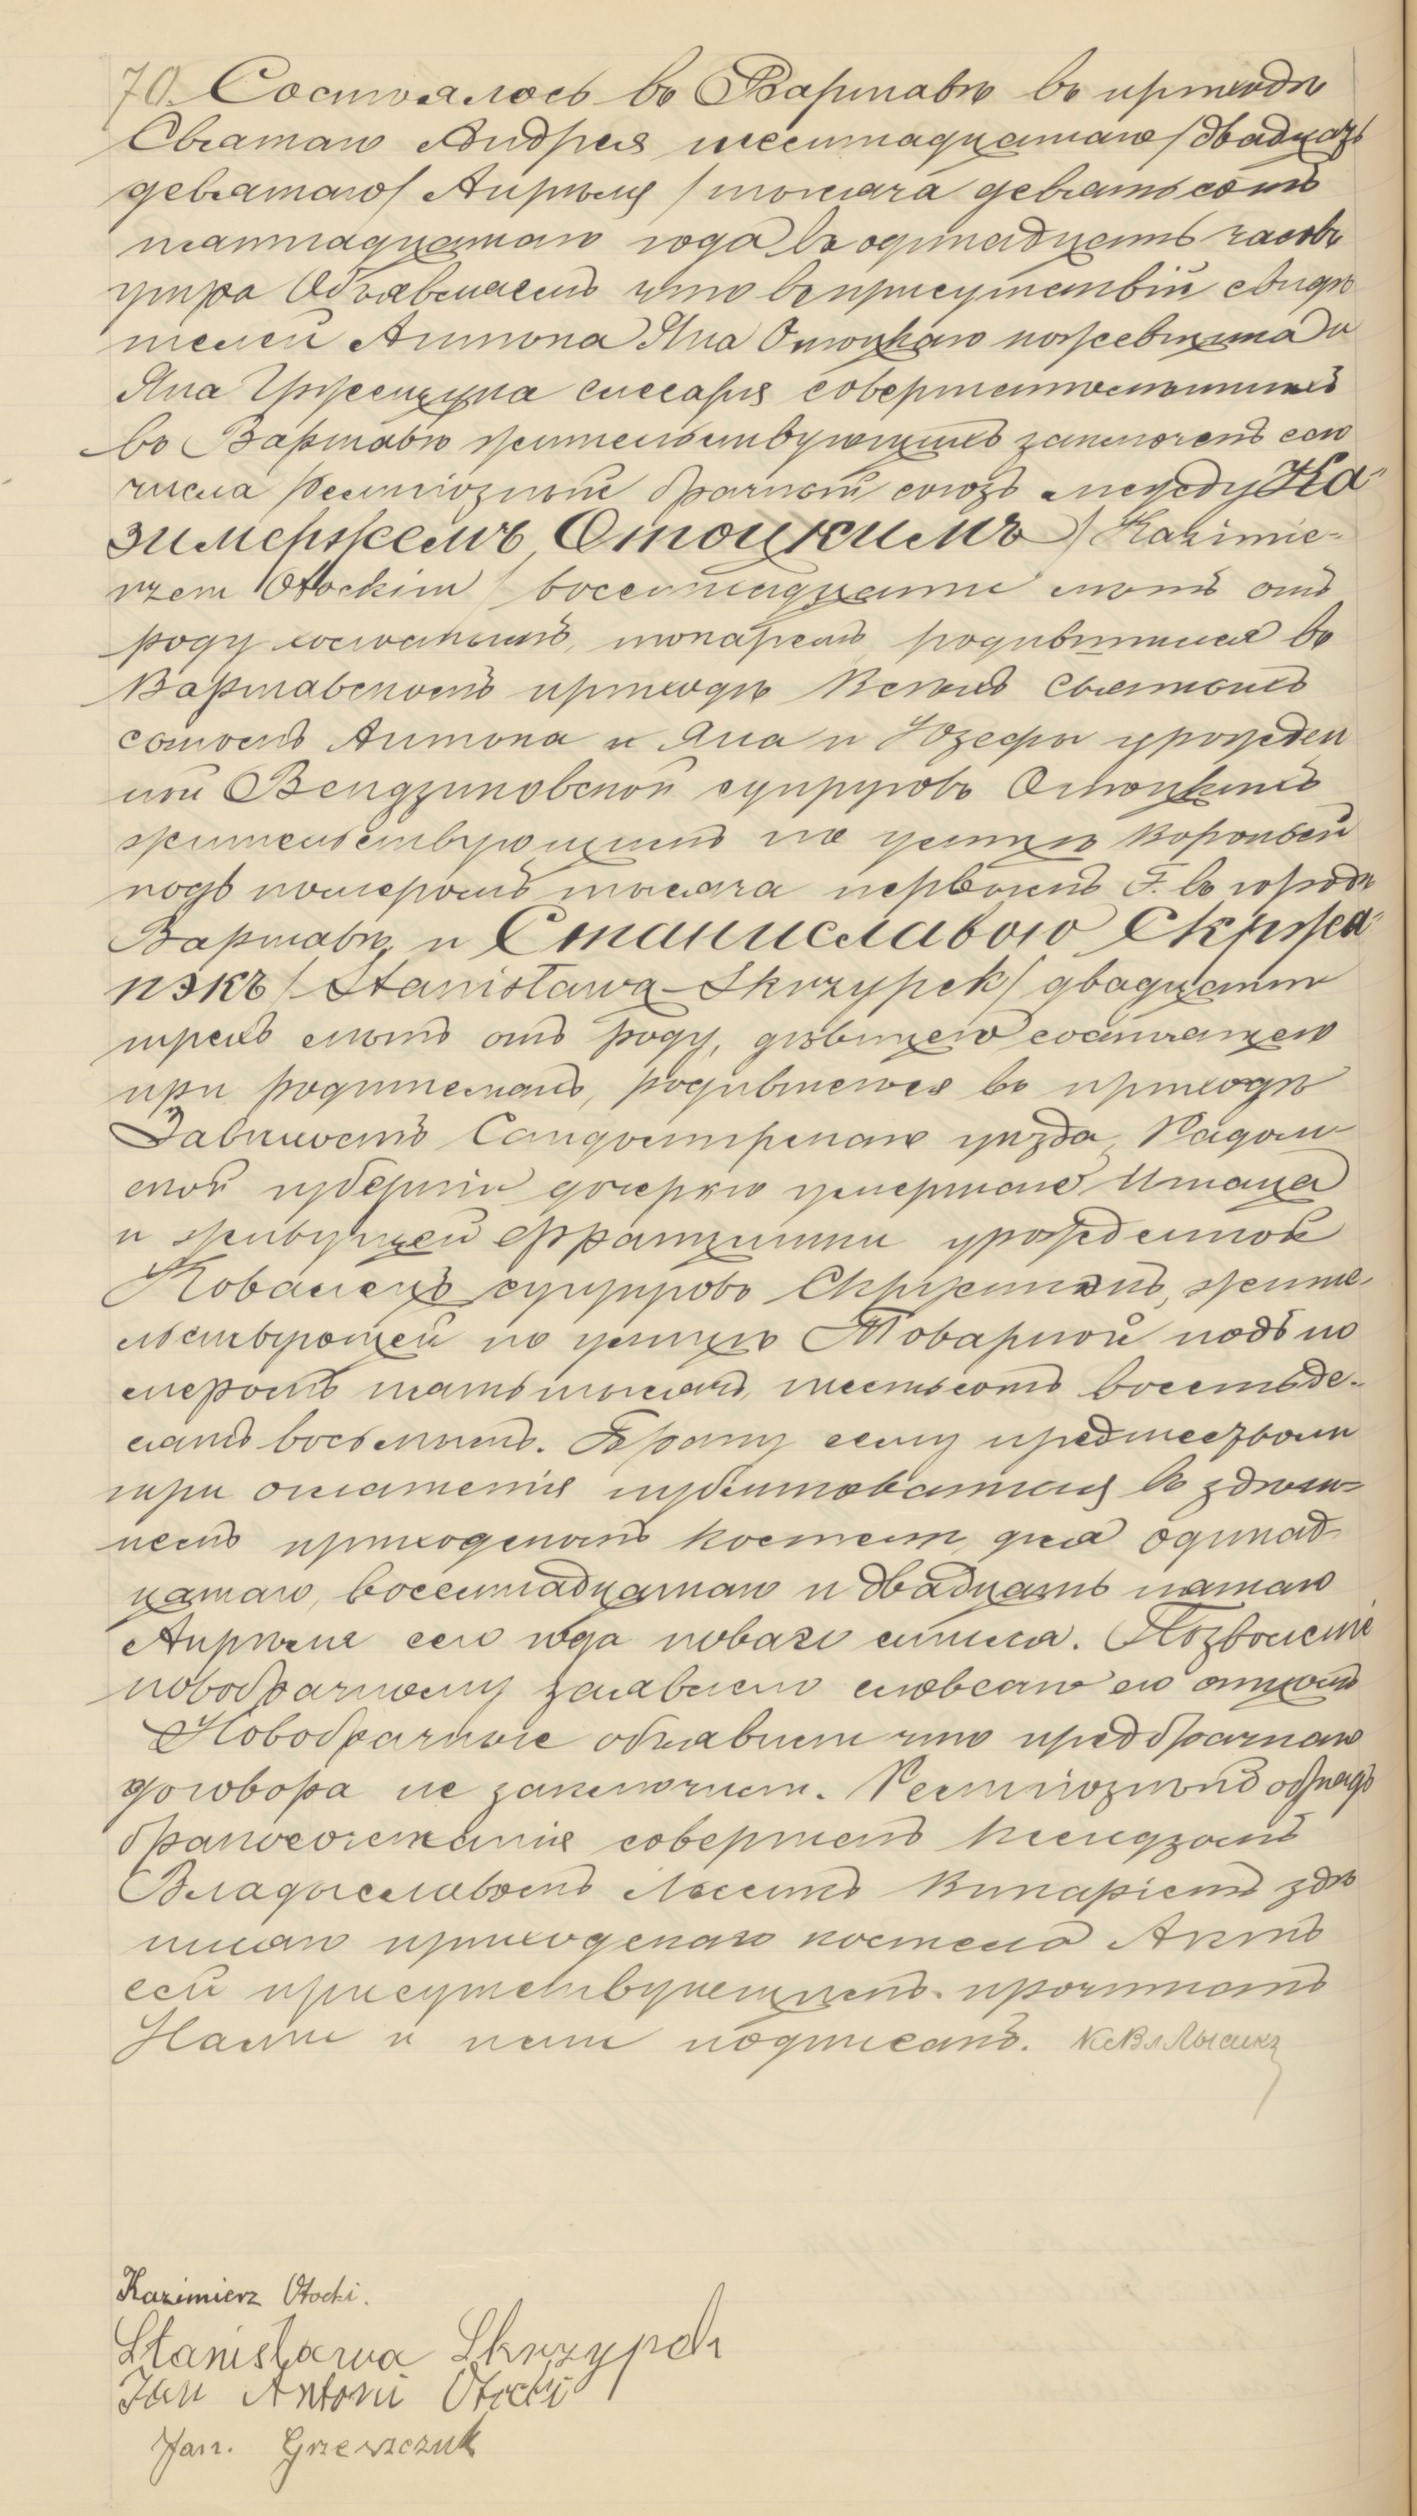 70. Состоялось въ Варшавѣ въ приходѣ
Святаго Андрея шестнадцатаго /двадцать
девятаго/ Апрѣля /тысяча девятьсотъ
пятнадцатаго года въ одинадцать часовъ
утра Объявляемъ что въ присутствіи свидѣ
телей Антона Яна Отоцкаго и
Яна Гржещука слесаря совершеннолѣтнихъ
въ Варшавѣ жительствующихъ заключенъ сего
числа религіозный брачный союзъ между Ка-
зимержемъ Отоцкимъ / Kazimie-
rzem Otockim / восемнадцати лѣтъ отъ
роду холостымъ, токаремъ, родившимся въ
Варшавскомъ приходѣ Всѣхъ Святыхъ
сыномъ Антона и Яна и Юзефы урожден
ной Вендзиковской супруговъ Отоцкихъ
жительствующимъ на улицѣ Вороньей
подъ номеромъ тысяча первымъ F. въ городѣ
Варшавѣ, и Станиславою Скржи-
пэкъ / Stanisława Skrzypek / двадцати
трехъ лѣтъ отъ роду, дѣвицею состоящею
при родителяхъ, родившеюся въ приходѣ
Завихостъ Сандомирскаго уѣзда, Радом-
ской губерніи дочерью умершаго Игнаца
и живущей Францишки урожденной
Ковалецъ супруговъ Скржипэкъ, жите-
льствующей по улицѣ Товарной подъ но
меромъ пять тысячъ шестьсотъ восемьде-
сятъ восьмымъ. Браку сему предшествовали
три оглашенія публикованныя въ здѣш-
немъ приходскомъ костелѣ дня одинад-
цатаго, восемнадцатаго и двадцать пятаго
Апрѣля сего года новаго стиля. Позволеніе
новобрачному заявлено словесно его отцомъ
Новобрачные объявили что предбрачнаго
договора не заключили. Религіозный обрядъ
бракосочетанія совершенъ Ксендзомъ
Владыславомъ Лысикъ Викаріемъ здѣ
шняго приходскаго костела Актъ
сей присутствующимъ прочитанъ
Нами и ними подписанъ. Кс Вл Лысикъ
Kazimierz Otocki.
Stanisława Skrzypek
Jan Antoni Otocki
Jan. Grzeszczuk